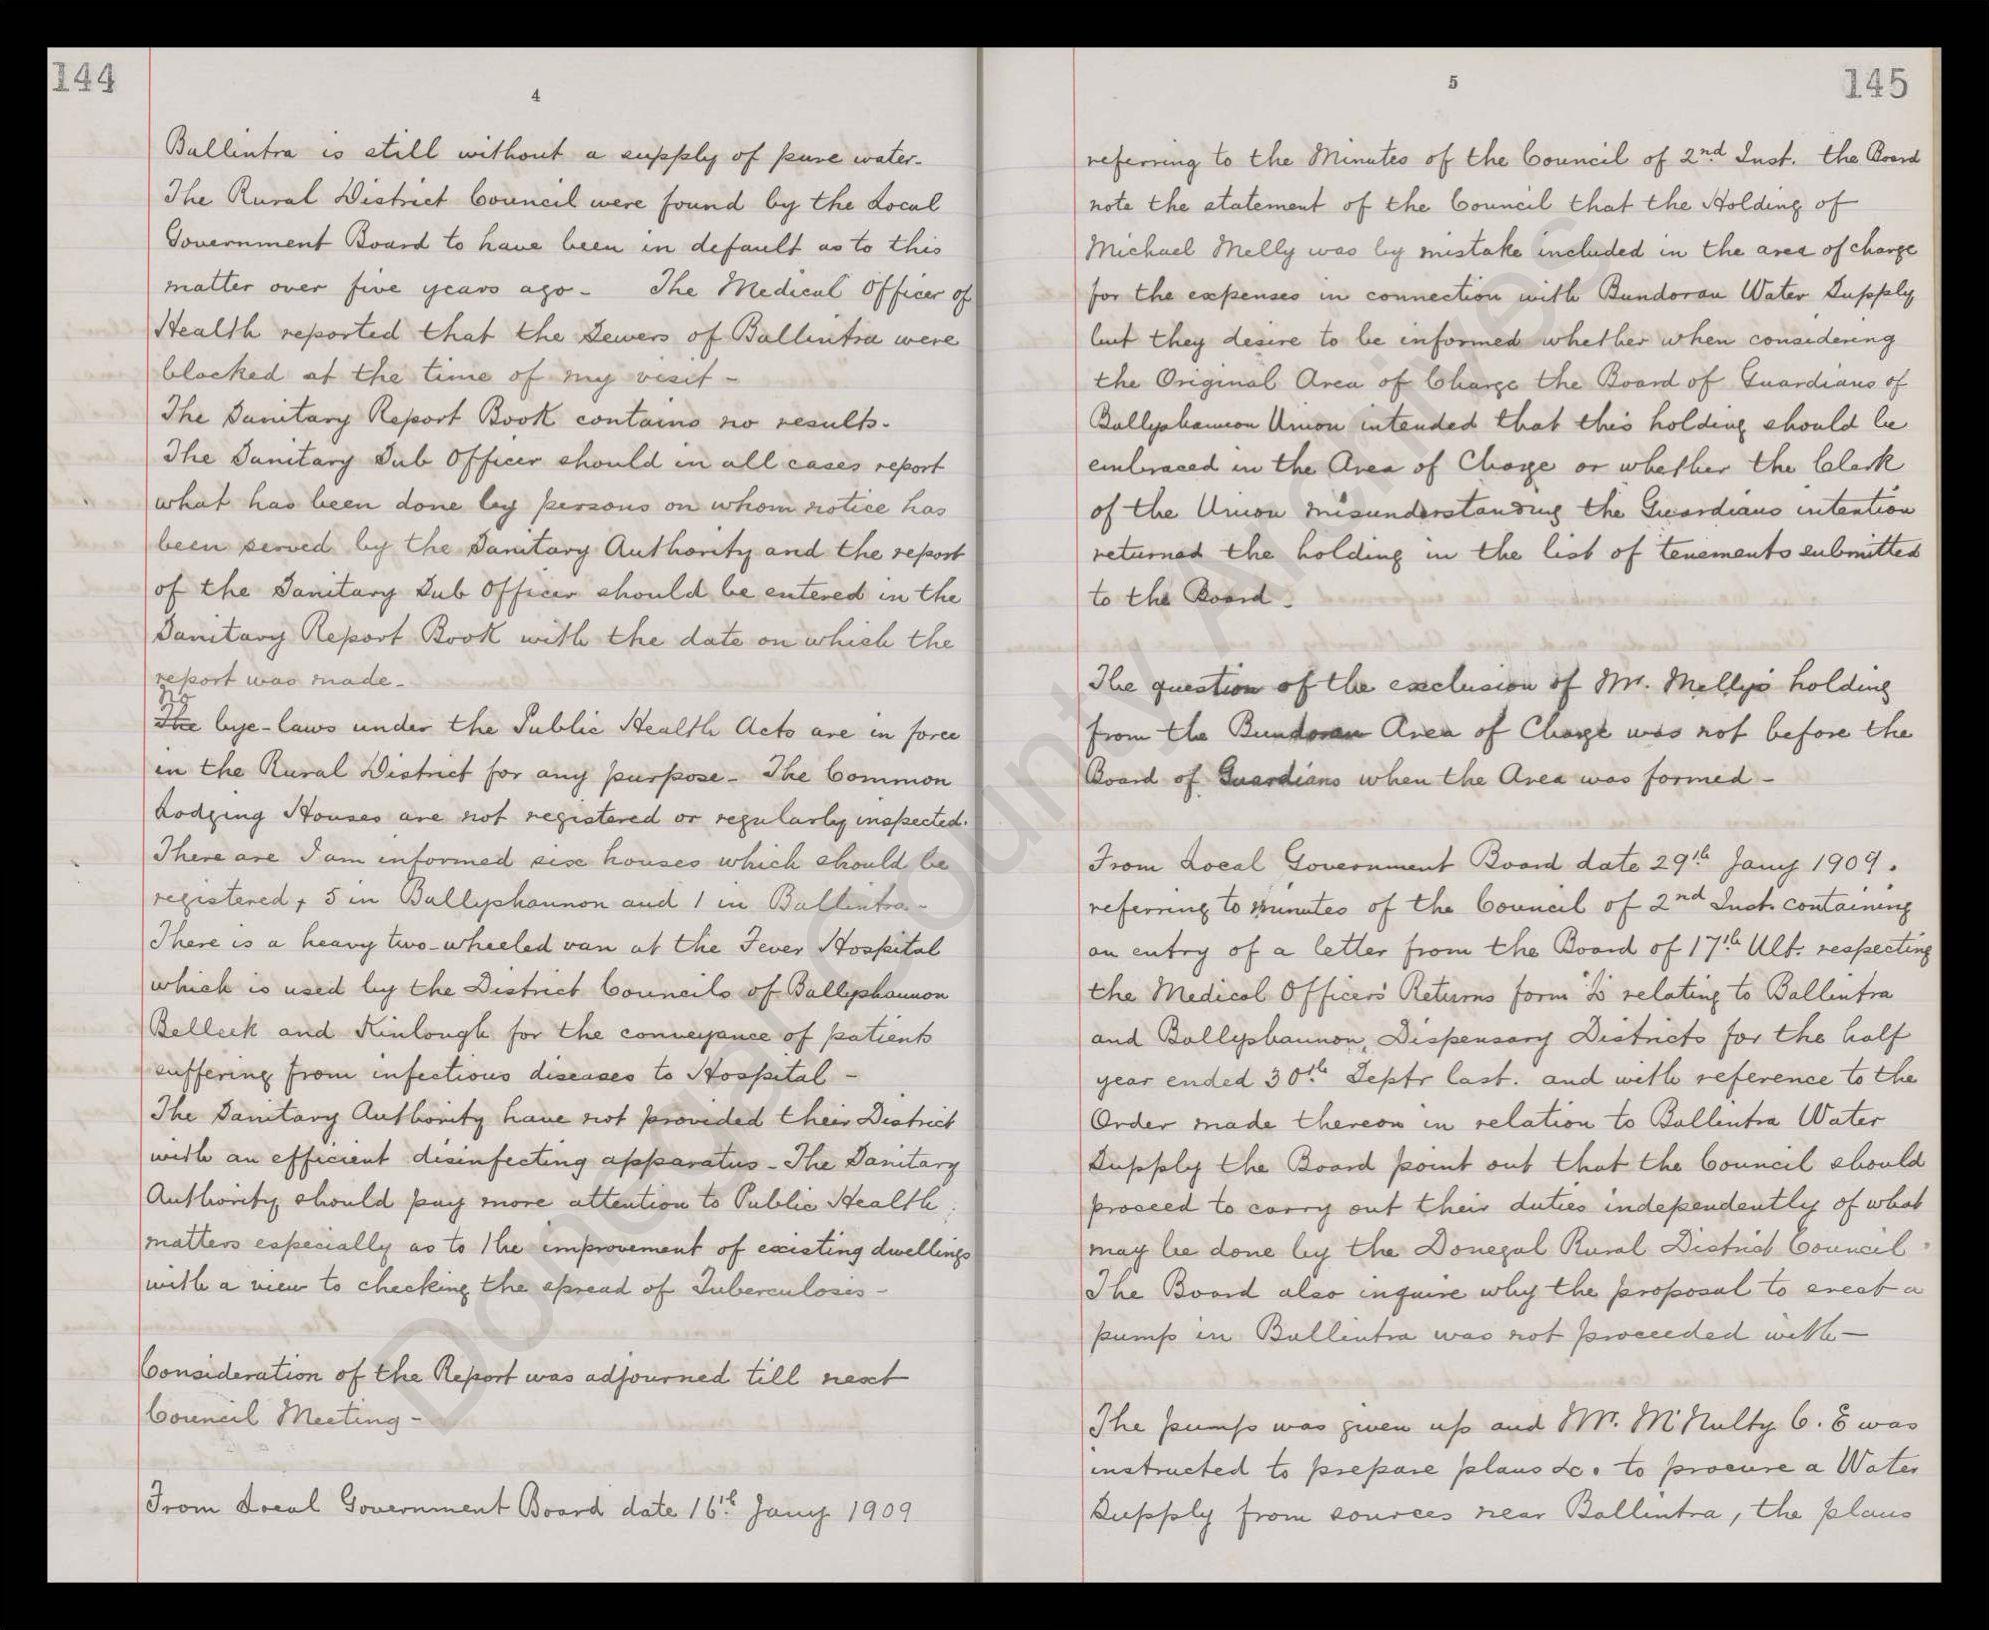 144
4
Ballintra is still without a supply of pure water.
The Rural District Council were found by the Local
Government Board to have been in default as to this
matter over five years ago - The Medical Officer of
Health reported that the Sewers of Ballintra were
blocked at the time of my visit -
The Sanitary Report Book contains no results.
The Sanitary Sub Officer should in all cases report
what has been done by persons on whom notice has
been served by the Sanitary Authority and the report
of the Sanitary Sub Officer should be entered in the
Sanitary Report Book with the date on which the
report was made.
No
The bye-laws under the Public Health Acts are in force
in the Rural District for any purpose - The Common
Lodging Houses are not registered or regularly inspected.
There are I am informed six houses which should be
registered, 5 in Ballyshannon and 1 in Ballintra -
There is a heavy two-wheeled van at the Fever Hospital
which is used by the District Councils of Ballyshannon
Belleek and Kinlough for the conveyance of patients
suffering from infectious diseases to Hospital -
The Sanitary Authority have not provided their District
with an efficient disinfecting apparatus - The Sanitary
Authority should pay more attention to Public Health
matters especially as to the improvement of existing dwellings
with a view to checking the spread of Tuberculosis -
Consideration of the Report was adjourned till next
Council Meeting -
From Local Government Board date 16th Jany 1909
5
145
referring to the Minutes of the Council of 2nd Inst. the Board
note the statement of the Council that the Holding of
Michael Melly was by mistake included in the area of charge
for the expenses in connection with Bundoran Water Supply
but they desire to be informed whether when considering
the Original Area of Charge the Board of Guardians of
Ballyshannon Union intended that this holding should be
embraced in the Area of Charge or whether the Clerk
of the Union misunderstanding the Guardians intention
returned the holding in the list of tenements submitted
to the Board.
The question of the exclusion of Mr. Melly's holding
from the Bundoran Area of Charge was not before the
Board of Guardians when the Area was formed -
From Local Government Board date 29th Jany 1909.
referring to minutes of the Council of 2nd Inst. containing
an entry of a letter from the Board of 17th Ult. respecting
the Medical Officers' Returns form relating to Ballintra
and Ballyshannon Dispensary Districts for the half
year ended 30th Septr last. and with reference to the
Order made thereon in relation to Ballintra Water
Supply the Board point out that the Council should
proceed to carry out their duties independently of what
may be done by the Donegal Rural District Council.
The Board also inquire why the proposal to erect a
pump in Ballintra was not proceeded with -
The pump was given up and Mr. McNulty C. E was
instructed to prepare plans &c. to procure a Water
Supply from sources near Ballintra, the plans
Donegal County Archives